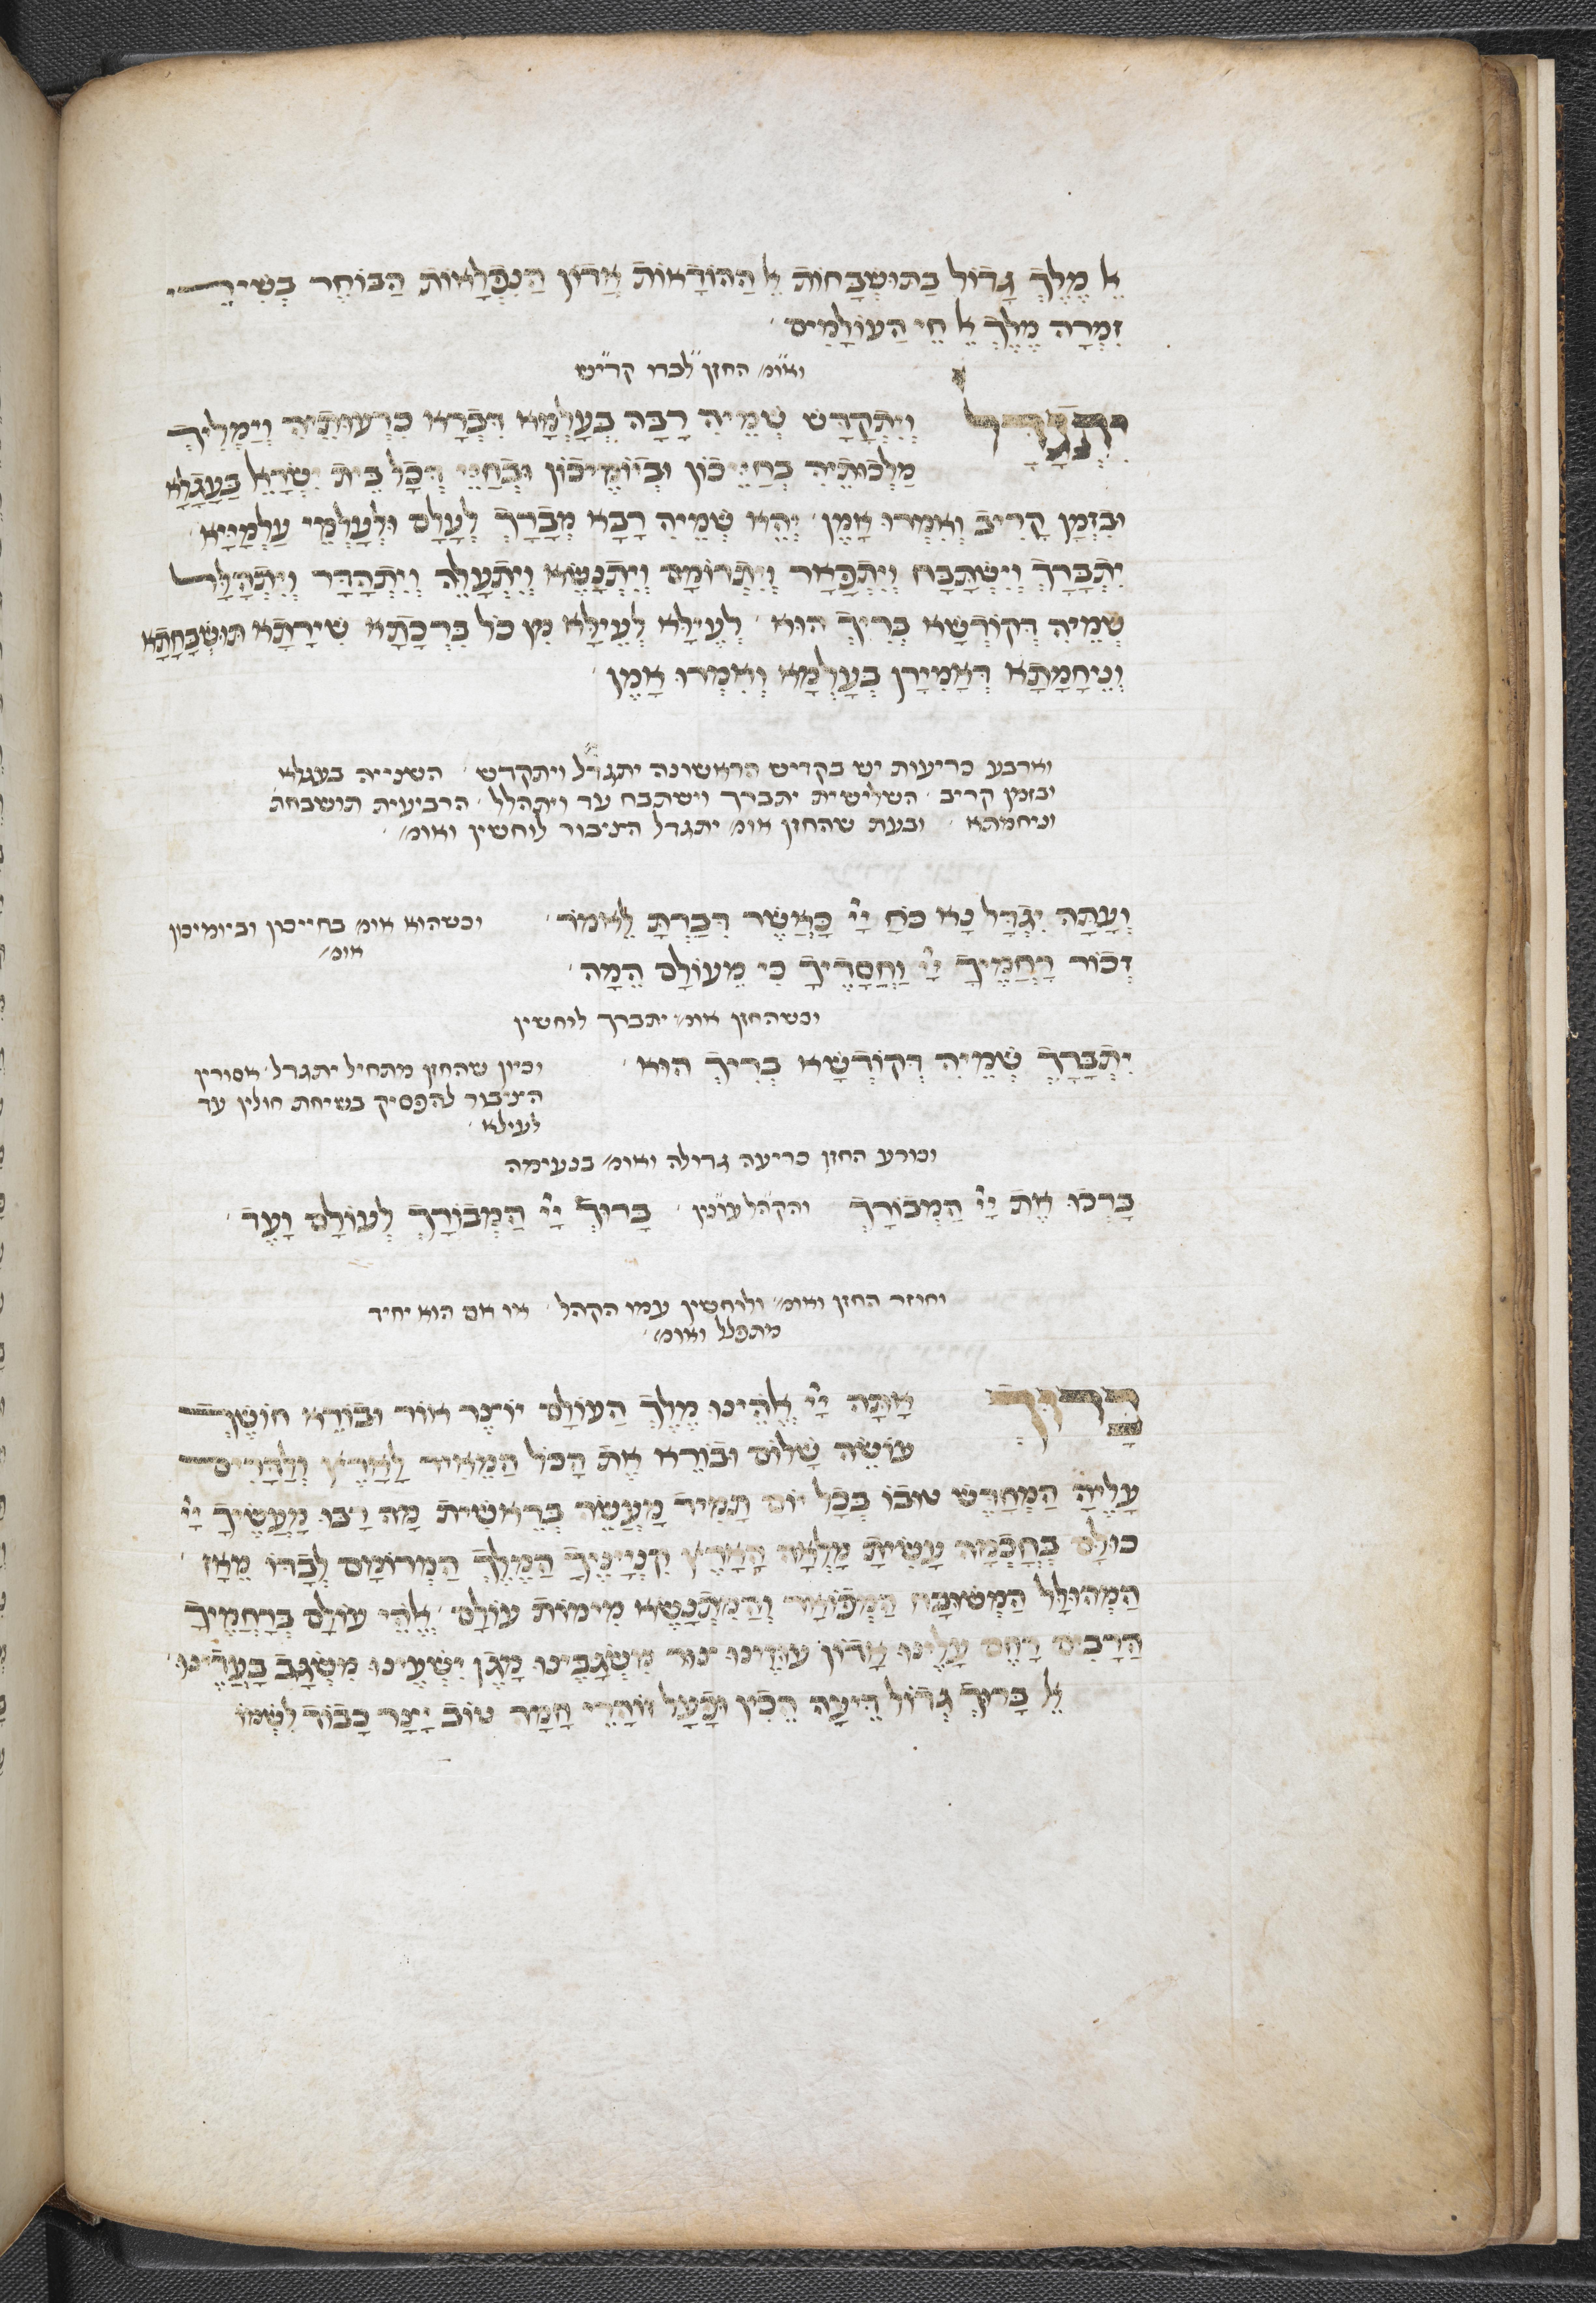 אֵ֗ מֶלֶךְ גָדוֹל בַתוּשְבָחוֹת אֵ֗ הַהוֹדָאוֹת אֲדוֹן הַנִפְלָאוֹת הַבוֹחֵר בְשִירֵי
זִמְרָה מֶלֶךְ אֵ֗ חֵי הַעוֹלָמִים
ואומ׳ החזן לבדו קדיש
יִתְגַדַל וְיִתְקַדַש שְמֵיה רָבָה בְעָלְמָא דִבְרָא כִרְעוּתֵיה וְיַמְלִיךְ
מַלְכוּתֵיה בְחַיֵיכוֹן וּבְיוֹמֵיכוֹן וּבְחַיֵי דְכָל בֵית יִשְרָאֵ֗ בַעֲגָלָא
וּבִזְמַן קָרִיב וְאִמְרוּ אָמֵן יְהֵא שְמֵיה רָבָא מְבָרָךְ לְעָלַם וּלְעָלְמֵי עַלְמַיָיא
יִתְבָרַךְ וְיִשְתַבַח וְיִתְפָאַר וְיִתְרוֹמַם וְיִתְנַשֵא וְיִתְעַלֵה וְיִתְהַדַר וְיִתְהַלַל
שְמֵיה דְקוֹדְשָא בְרִיךְ הוּא לְעֵילָא לְעֵילָא מִן כֹל בִרְכָתָא שִירָתָא תוּשְבְחָתָא
וְנֵיחָמָתָא דְאֲמִירָן בְעָלְמָא וְאִמְרוּ אָמֵן
וארבע כריעות יש בקדיש הראשונה יתגדל ויתקדש השנייה בעגלא
ובזמן קריב השלישית יתברך וישתבח עד ויתהלל הרביעית תושבחת
ונחמתא ובעת שהחזן אומ׳ יתגדל הציבור לוחשין ואומ׳
וְעַתָה יִגְדַל נָא כֹחַ יְיָ כַאֲשֶר דִבַרְתָ לֵאמֹר וכשהוא אומ׳ בחייכון וביומיכון
אומ׳
זְכוֹר רַחֲמֶיךָ יְיָ וַחֲסָדֶיךָ כִי מֵעוֹלָם הֵמָה
וכשהחזן אומ׳ יתברך לוחשין
יִתְבָרַךְ שְמֵיה דְקוֹדְשָא בְרִיךְ הוּא וכיון שהחזן מתחיל יתגדל אסורין
הציבור להפסיק בשיחת חולין עד
לעילא
וכורע החזן כריעה גדולה ואומ׳ בנעימה
בָרְכוּ אֶת יְיָ הַמְבוֹרָךְ והקהל עונין בָרוּךְ יְיָ הַמְבוֹרָךְ לְעוֹלָם וָעֶד
וחוזר החזן ואומ׳ ולוחשין עמו הקהל או אם הוא יחיד
מתפלל ואומ׳
בָרוּךְ אַתָה יְיָ אֱלֹהֵינוּ מֶלֶךְ הַעוֹלָם יוֹצֵר אוֹר וּבוֹרֵא חוֹשֶךְ
עוֹשֶה שָלוֹם וּבוֹרֵא אֶת הַכֹל הַמֵאִיר לָאָרֶץ וְלַדָרִים
עָלֶיהָ הַמְחַדֵש טוּבוֹ בְכָל יוֹם תָמִיד מַעֲשֵה בְרֵאשִית מָה רַבוּ מַעֲשֶיךָ יְיָ
כוּלָם בְחָכְמָה עָשִיתָ מָלְאָה הָאָרֶץ קִנְיָינֶיךָ הַמֶלֶךְ הַמְרוֹמָם לְבַדוֹ מֵאָז
הַמְהוּלָל הַמְשוּבָח הַמְפוֹאָר וְהַמִתְנַשֵא מִימוֹת עוֹלָם אֱלֹהֵי עוֹלָם בְרַחֲמֶיךָ
הַרָבִים רַחֵם עָלֵינוּ אֲדוֹן עוּזֵינוּ צוּר מִשְגַבֵינוּ מָגֵן יִשְעֵינוּ מִשְגָב בַעֲדֵינוּ
אֵ֗ בָרוּךְ גְדוֹל דֵיעָה הֵכִין וּפָעַל זוֹהֳרֵי חַמָה טוֹב יָצַר כָבוֹד לִשְמוֹ